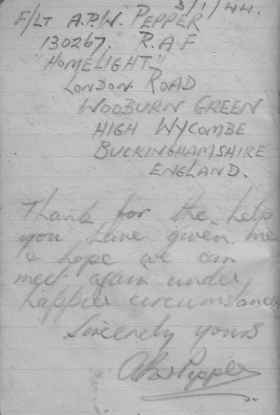 3/1/44.
F/LT A.P.W. PEPPER
130267. R.A.F
"HOMELIGHT"
LONDON ROAD
WOOBURN GREEN
HIGH WYCOMBE
BUCKINGHAMSHIRE
ENGLAND.
Thank for the help
you have given me
& hope we can
meet again under
happier circumstances
Sincerely yours
Pepper